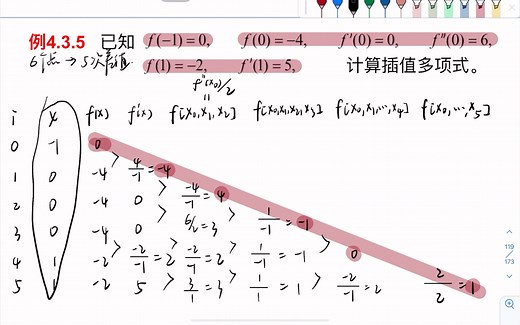 例4.3.5 已知 f(-1)=0, f(0)=-4, f'(0)=0, f''(0)=6,
6个点→5次 f(1)=-2, f'(1)=5, 计算插值多项式。
f''(x₀)/2
=
i x f(x) f'(x) f[x₀,x₁,x₂] f[x₀,x₁,x₂,x₃] f[x₀,x₁,…,x₄] f[x₀,…,x₅]
0 -1 0
1 0 -4 4/-1=-4
2 0 -4 0 -4/-1=4
3 0 -4 0 6/2=3 1/-1=-1
4 1 -2 -2/-1=2 -2/-1=2 1/-1=-1 0
5 1 -2 5 3/1=3 1/1=1 -2/-1=2 2/2=1
119
173